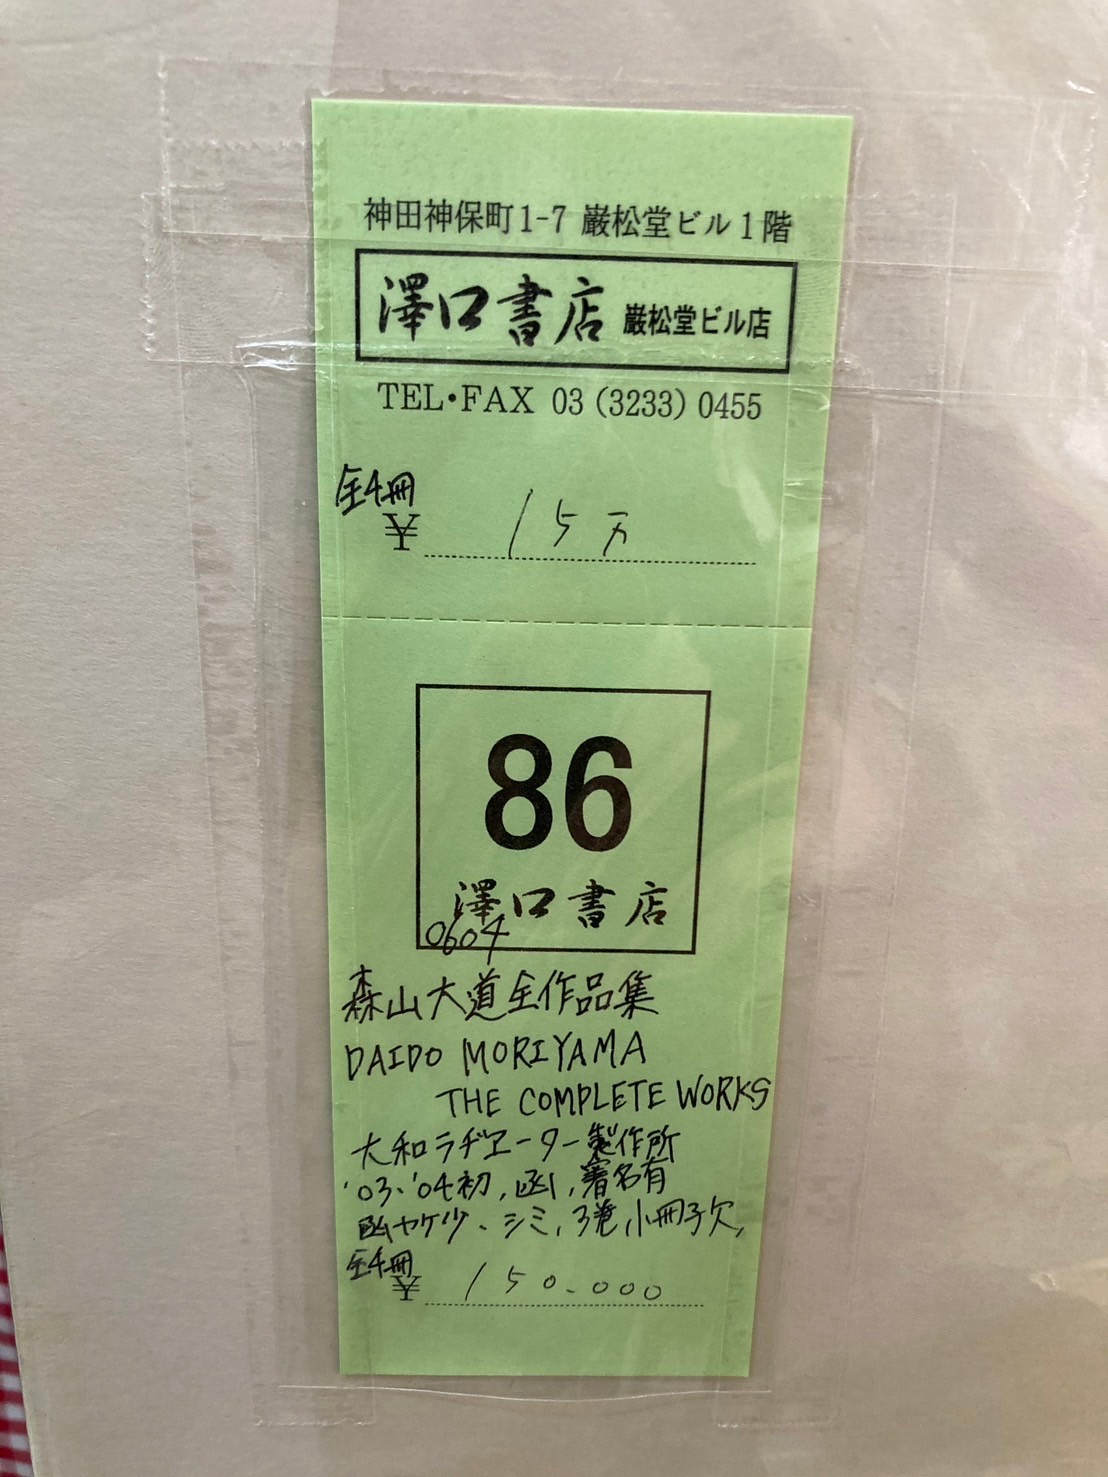 神田神保町1-7 巌松堂ビル1階
澤口書店 巌松堂ビル店
TEL・FAX 03(3233)0455
全4冊
¥ 15万
86
澤口書店
0604
森山大道全作品集
DAIDO MORIYAMA
THE COMPLETE WORKS
大和ラヂヱーター製作所
'03、'04初,函,署名有
函ヤケ少、シミ,3巻小冊子欠,
全4冊
¥ 150.000